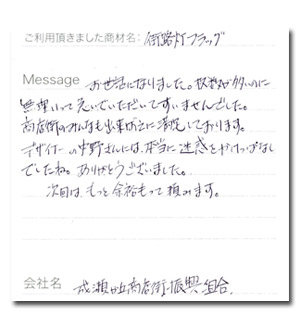 ご利用頂きました商材名: 街路灯フラッグ
Message お世話になりました。枚数が多いのに
無理いって急いでいただいてすいませんでした。
商店街のみんなも出来ばえに満足しております。
デザイナーの中野さんには、本当に迷惑をかけっぱなし
でしたね。ありがとうございました。
次回は、もっと余裕もって頼みます。
会社名 成瀬が丘商店街振興組合